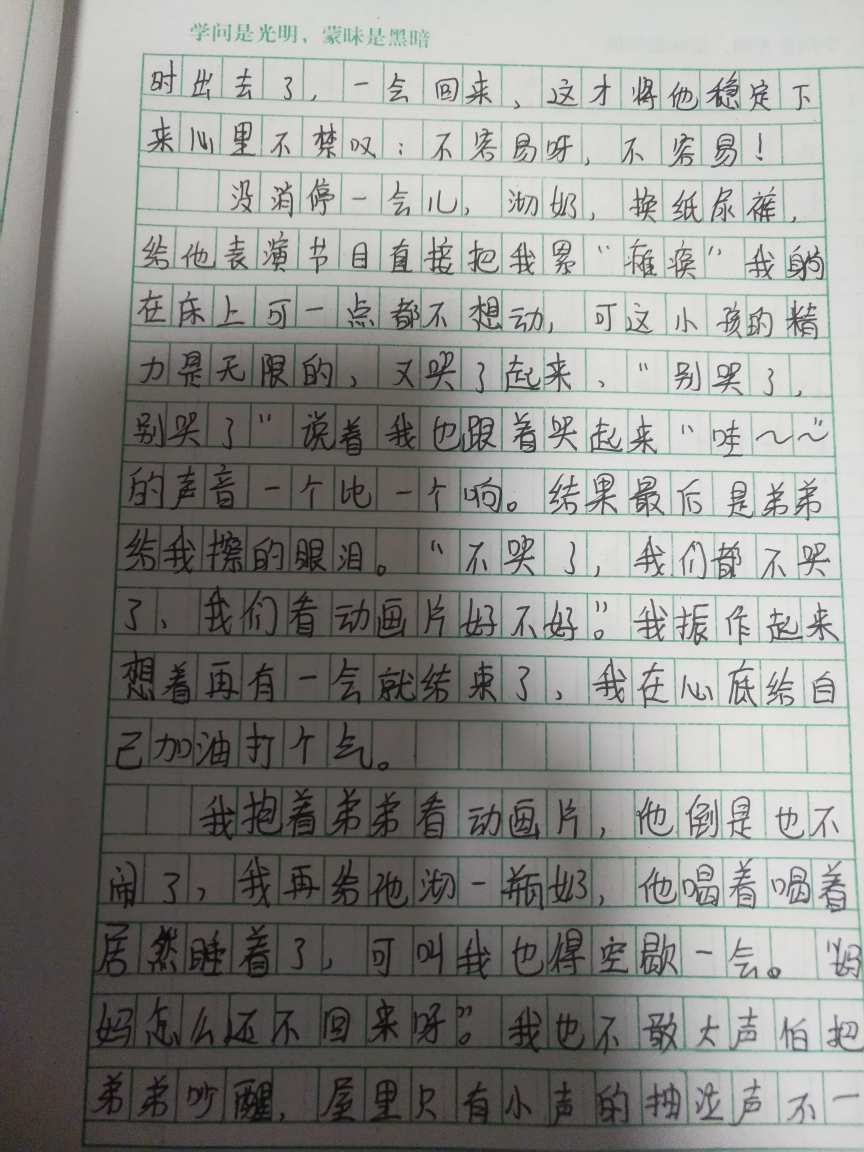 学问是光明，蒙昧是黑暗
时出去了，一会回来，这才将他稳定下
来心里不禁叹：不容易呀，不容易！
没消停一会儿，沏奶，换纸尿裤，
给他表演节目直接把我累“瘫痪”我躺
在床上可一点都不想动，可这小孩的精
力是无限的，又哭了起来，“别哭了，
别哭了”说着我也跟着哭起来“哇～～”
的声音一个比一个响。结果最后是弟弟
给我擦的眼泪。“不哭了，我们都不哭
了、我们看动画片好不好”。我振作起来
想着再有一会就结束了、我在心底给自
己加油打个气。
我抱着弟弟看动画片，他倒是也不
闹了，我再给他沏一瓶奶，他喝着喝着
居然睡着了，可叫我也得空歇一会。“妈
妈怎么还不回来呀”。我也不敢大声怕把
弟弟吵醒，屋里只有小声的抽泣声不一